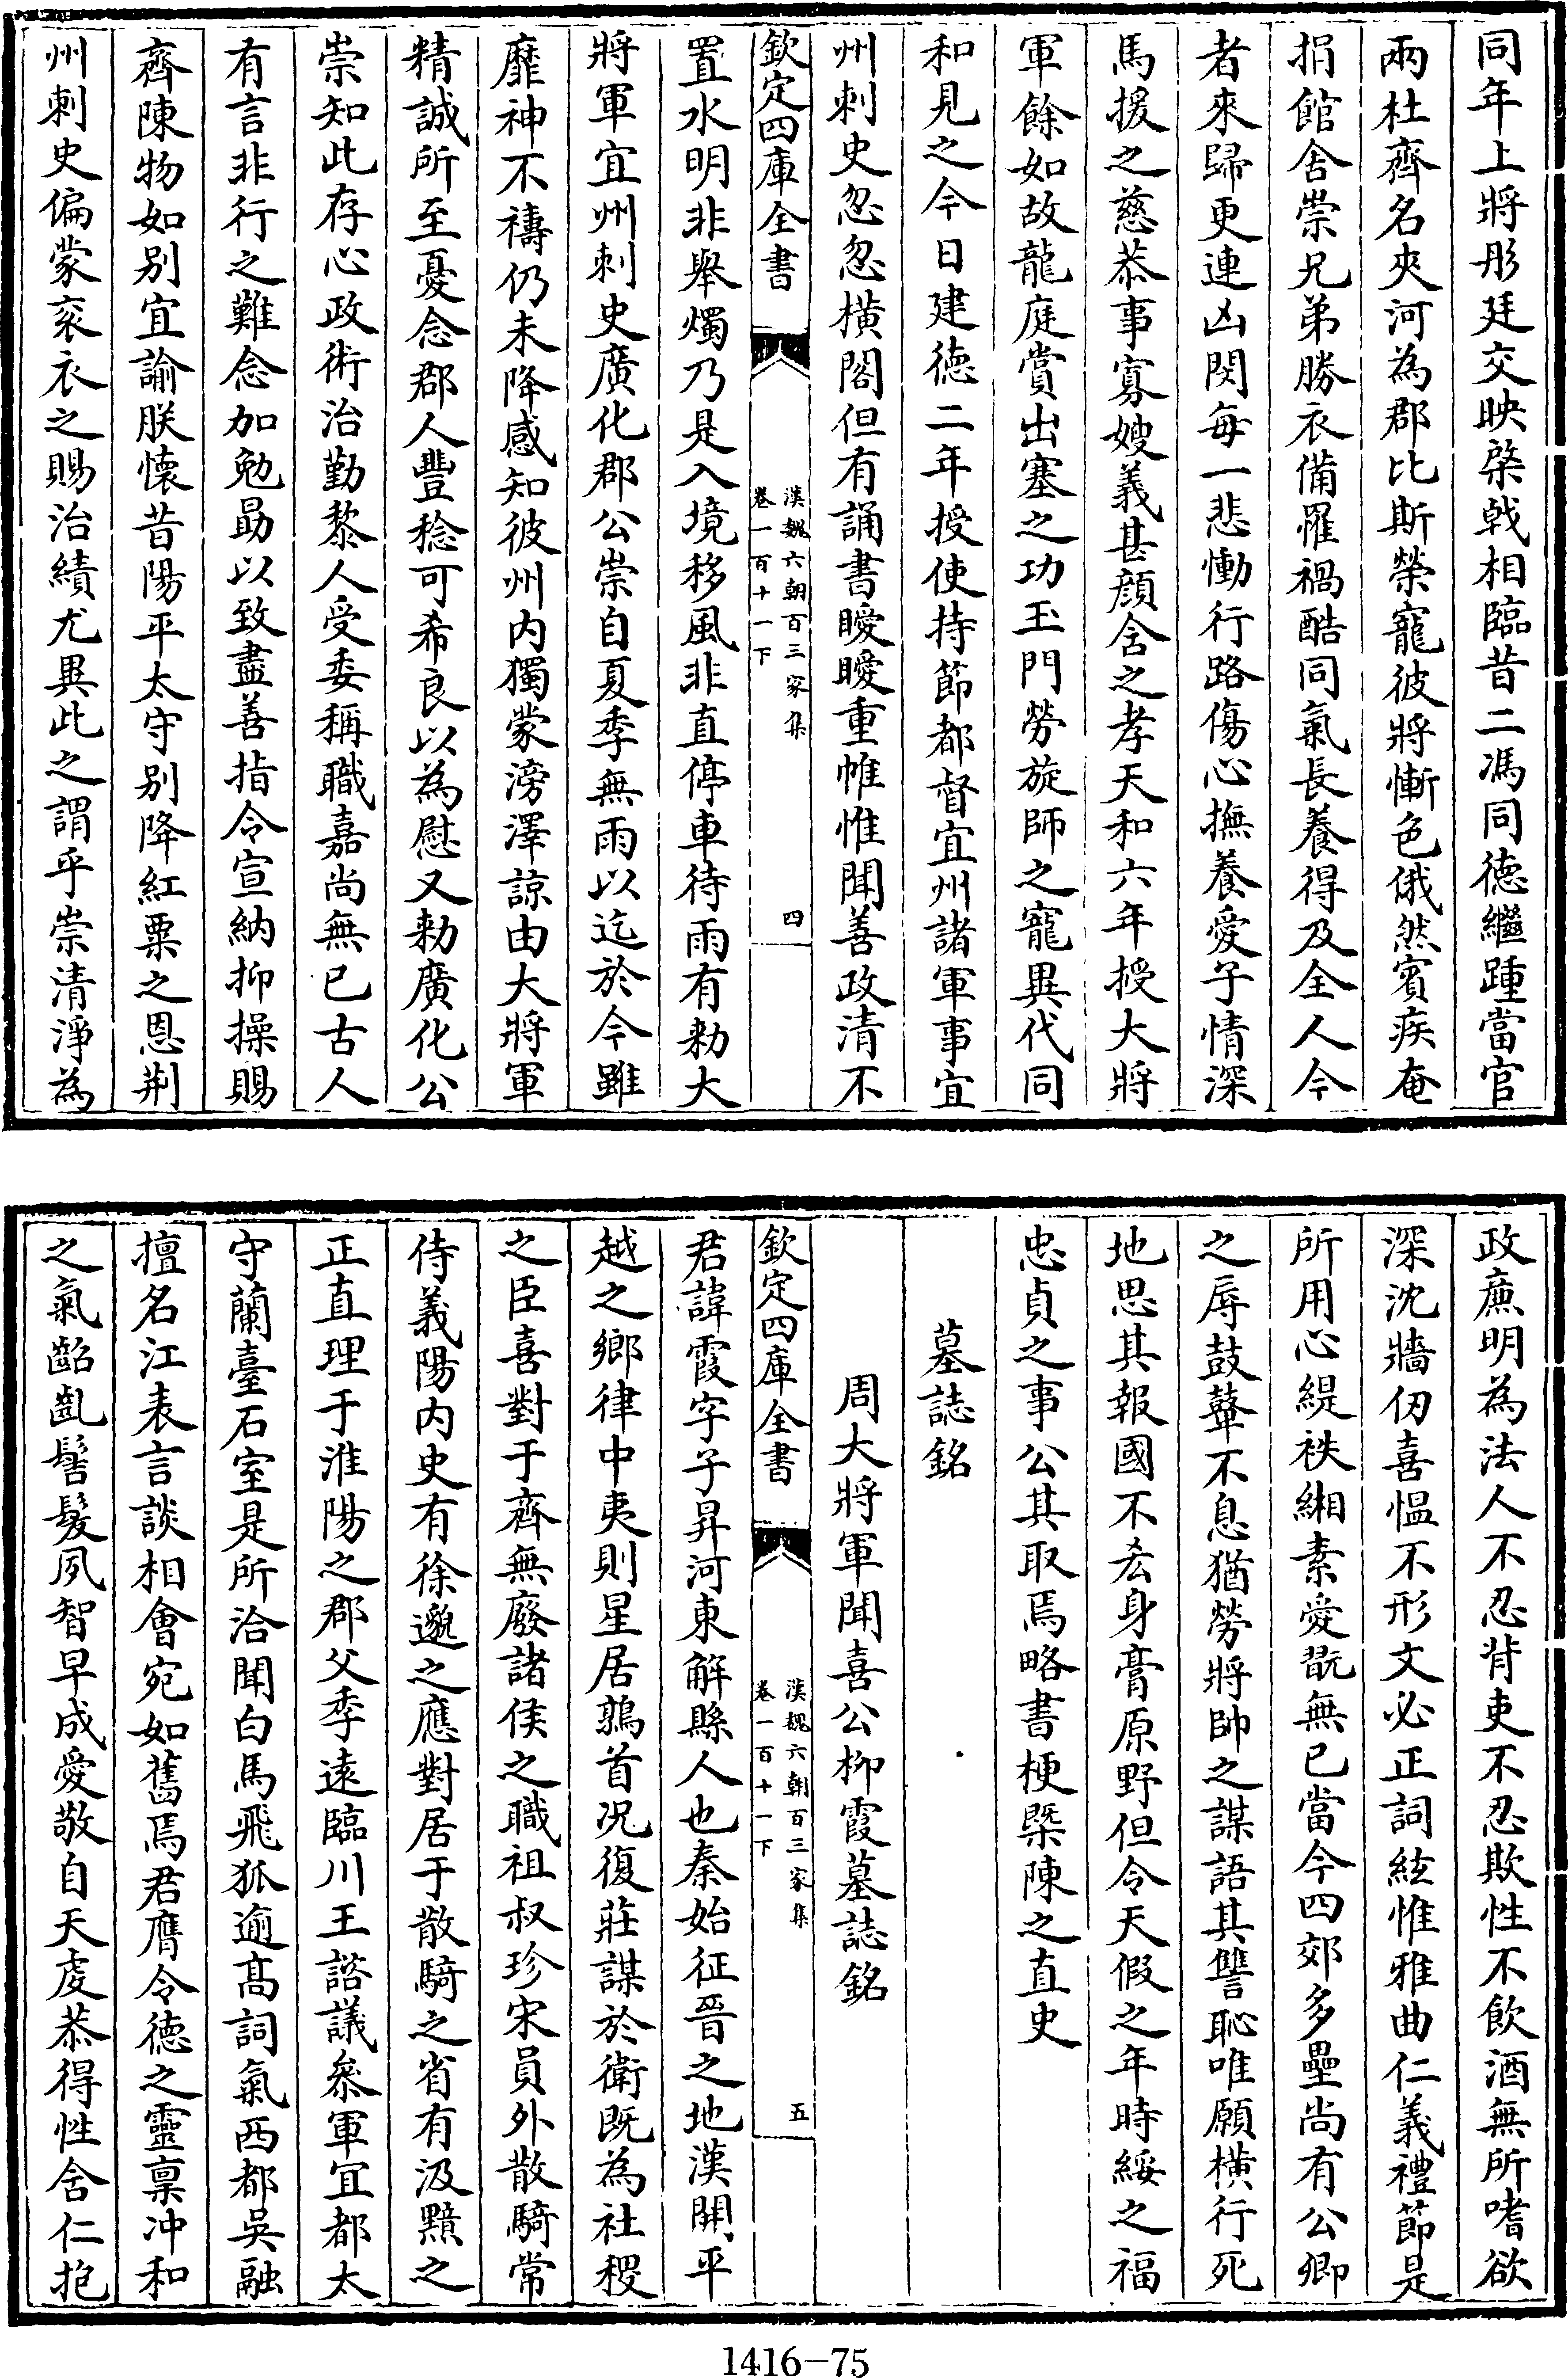 同年上將彤廷交映棨戟相臨昔二馮同德繼踵當官
兩杜齊名夾河為郡比斯榮寵彼將慚色俄然賓疾奄
捐館舍崇兄弟勝衣備罹禍酷同氣長養得及全人今
者來歸更連凶閔每一悲慟行路傷心撫養愛子情深
馬援之慈恭事寡嫂義甚顔含之孝天和六年授大將
軍餘如故龍庭賞出塞之功玉門勞旋師之寵異代同
和見之今日建德二年授使持節都督宜州諸軍事宜
州刺史忽忽橫閣但有誦書曖曖重帷惟聞善政清不
欽定四庫全書
漢魏六朝百三家集
卷一百十一下
四
置水明非舉燭乃是入境移風非直停車待雨有勅大
將軍宜州刺史廣化郡公崇自夏季無雨以迄於今雖
靡神不禱仍未降感知彼州内獨蒙滂澤諒由大將軍
精誠所至憂念郡人豐稔可希良以為慰又勅廣化公
崇知此存心政術治勤黎人受委稱職嘉尚無已古人
有言非行之難念加勉勗以致盡善指令宣納抑操賜
齊陳物如别宜諭朕懷昔陽平太守别降紅粟之恩荆
州刺史偏蒙衮衣之賜治績尤異此之謂乎崇清淨為
政亷明為法人不忍背吏不忍欺性不飲酒無所嗜欲
深沈牆仞喜愠不形文必正詞絃惟雅曲仁義禮節是
所用心緹袟緗素愛翫無已當今四郊多壘尚有公卿
之辱鼓鼙不息猶勞將帥之謀語其讐恥唯願橫行死
地思其報國不𠫤身膏原野但令天假之年時綏之福
忠貞之事公其取焉略書梗槩陳之直史
墓誌銘
周大將軍聞喜公柳霞墓誌銘
欽定四庫全書
漢魏六朝百三家集
卷一百十一下
五
君諱霞字子昇河東解縣人也秦始征晉之地漢開平
越之鄉律中夷則星居鶉首況復莊謀於衛既為社稷
之臣喜對于齊無廢諸侯之職祖叔珍宋員外散騎常
侍義陽内史有徐邈之應對居于散騎之省有汲黯之
正直理于淮陽之郡父季遠臨川王諮議叅軍宜都太
守蘭臺石室是所洽聞白馬飛狐逾高詞氣西都吳融
擅名江表言談相會宛如舊焉君膺令德之靈稟冲和
之氣齠齔髫髮夙智早成愛敬自天虔恭得性含仁抱
1416-75